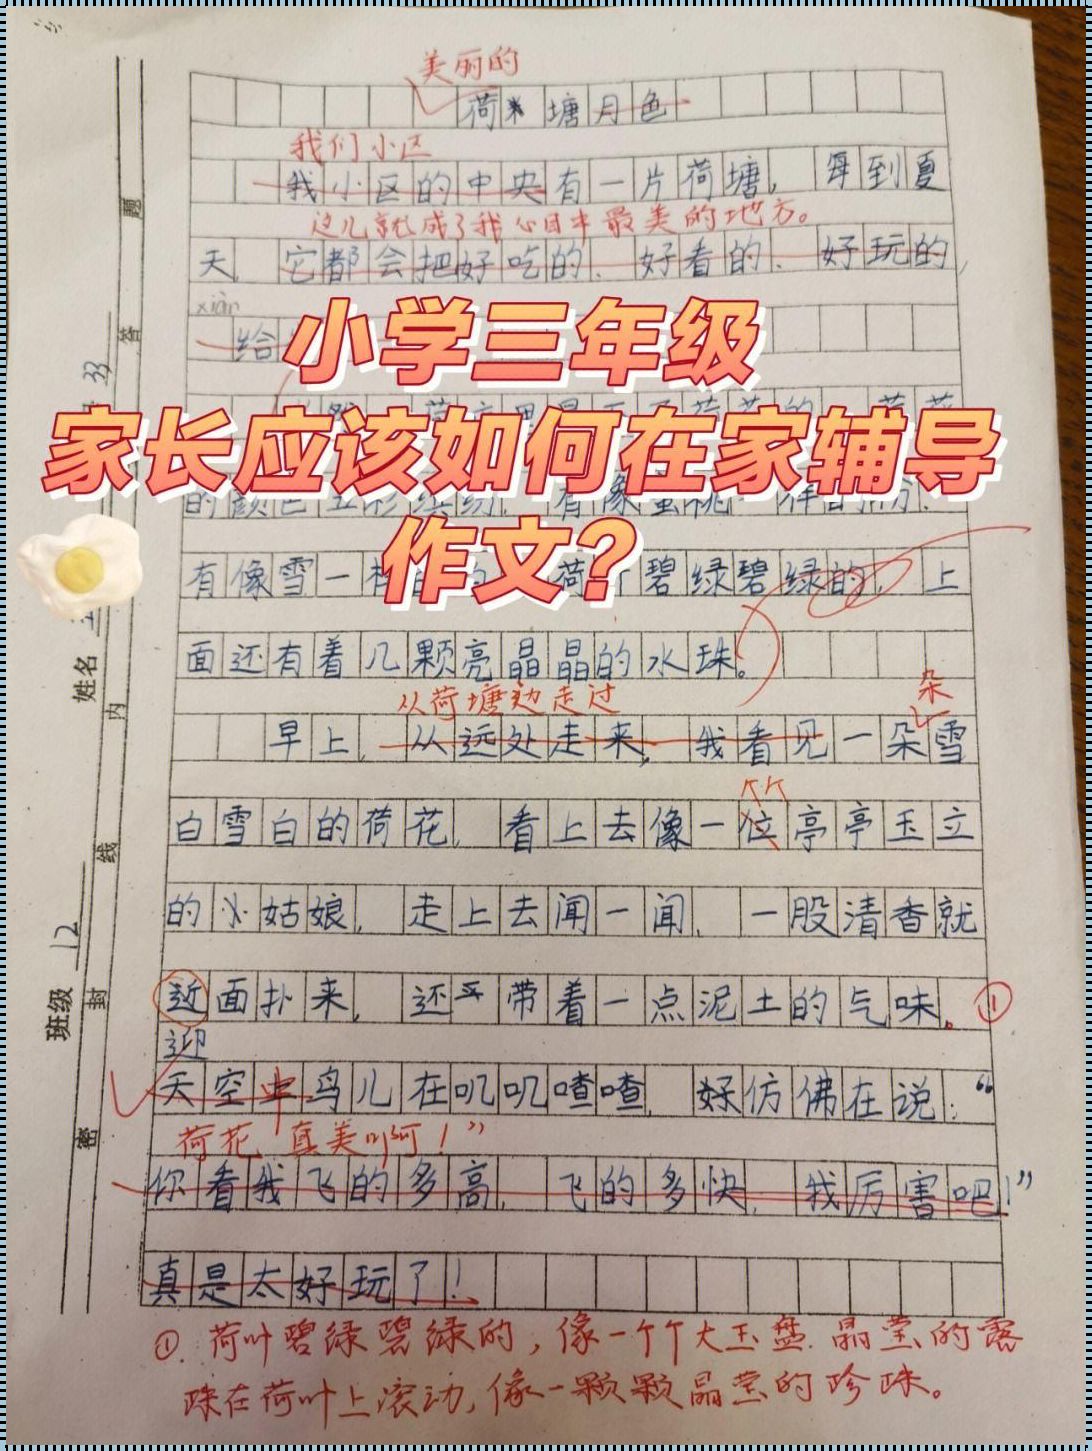 美丽的
荷塘月色
我们小区
我小区的中央有一片荷塘,每到夏
这儿就成了我心目中最美的地方。
天,它都会把好吃的、好看的、好玩的,
xiàn
给
小学三年级
家长应该如何在家辅导
作文?
的颜色五彩缤纷,有像蜜桃一样的粉,
有像雪一样白的,荷叶碧绿碧绿的,上
面还有着几颗亮晶晶的水珠。
从荷塘边走过
朵
早上,从远处走来,我看见一朵雪
个个
白雪白的荷花,看上去像一位亭亭玉立
的小姑娘,走上去闻一闻,一股清香就
近面扑来,还带着一点泥土的气味。①
迎
天空中鸟儿在叽叽喳喳,好仿佛在说:“
荷花真美啊!”
你看我飞的多高,飞的多快,我厉害吧!”
真是太好玩了!
①.荷叶碧绿碧绿的,像一个个大玉盘.晶莹的露
珠在荷叶上滚动,像一颗颗晶莹的珍珠。
班级 12
姓名
33
密
封
线
内
答
题